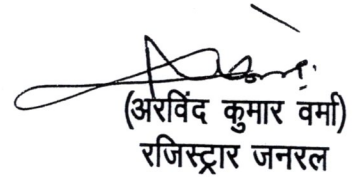 (अरविंद कुमार वर्मा)
रजिस्ट्रार जनरल